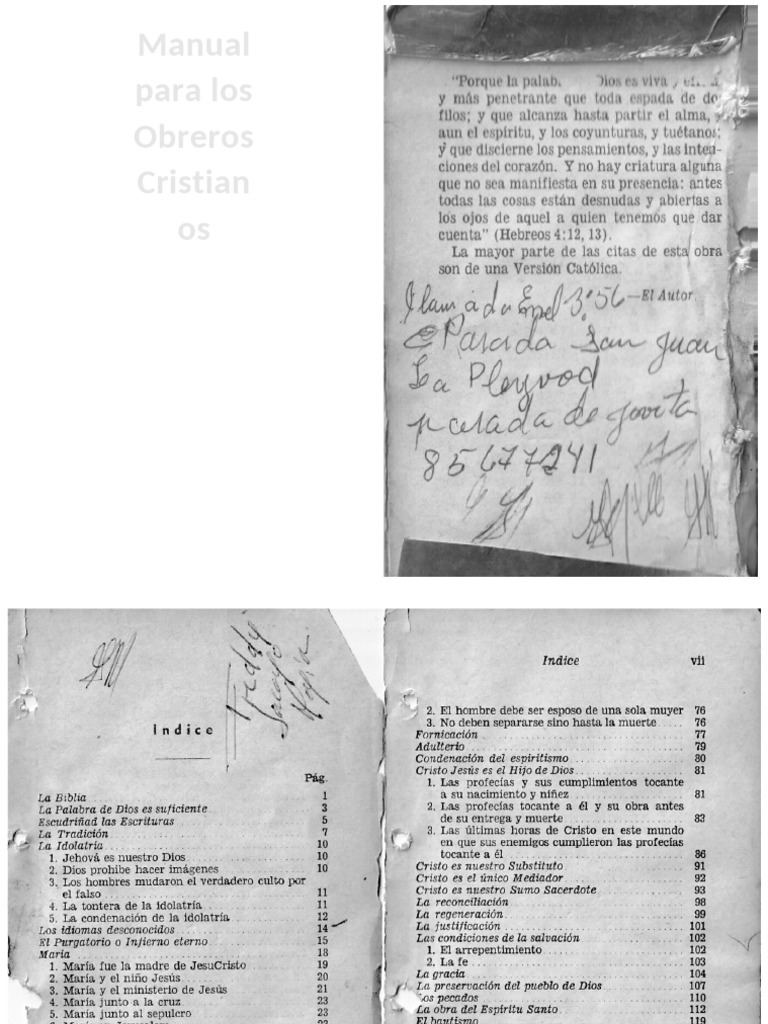 Manual
para los
Obreros
Cristian
os
"Porque la palab. Dios es viva y
y más penetrante que toda espada de do
filos; y que alcanza hasta partir el alma, y
aun el espíritu, y los coyunturas, y tuétanos;
y que discierne los pensamientos, y las inten-
ciones del corazón. Y no hay criatura alguna
que no sea manifiesta en su presencia: antes
todas las cosas están desnudas y abiertas a
los ojos de aquel a quien tenemos que dar
cuenta" (Hebreos 4:12, 13).
La mayor parte de las citas de esta obra
son de una Versión Católica.
—El Autor.
3:56
Parada San Juan
La Pleyvod
parada de jovita
85677241
Freddy
Indice
Pág.
La Biblia 1
La Palabra de Dios es suficiente 3
Escudriñad las Escrituras 5
La Tradición 7
La Idolatría 10
1. Jehová es nuestro Dios 10
2. Dios prohibe hacer imágenes 10
3. Los hombres mudaron el verdadero culto por
el falso 11
4. La tontera de la idolatría 11
5. La condenación de la idolatría 12
Los idiomas desconocidos 14
El Purgatorio o Infierno eterno 15
María 18
1. María fue la madre de JesuCristo 19
2. María y el niño Jesús 20
3. María y el ministerio de Jesús 21
4. María junto a la cruz 23
5. María junto al sepulcro 23
Indice vii
2. El hombre debe ser esposo de una sola muyer 76
3. No deben separarse sino hasta la muerte 76
Fornicación 77
Adulterio 79
Condenación del espiritismo 80
Cristo Jesús es el Hijo de Dios 81
1. Las profecías y sus cumplimientos tocante
a su nacimiento y niñez 81
2. Las profecías tocante a él y su obra antes
de su entrega y muerte 83
3. Las últimas horas de Cristo en este mundo
en que sus enemigos cumplieron las profecías
tocante a él 86
Cristo es nuestro Substituto 91
Cristo es el único Mediador 92
Cristo es nuestro Sumo Sacerdote 93
La reconciliación 98
La regeneración 99
La justificación 101
Las condiciones de la salvación 102
1. El arrepentimiento 102
2. La fe 103
La gracia 104
La preservación del pueblo de Dios 107
Los pecados 110
La obra del Espíritu Santo 112
El bautismo 119